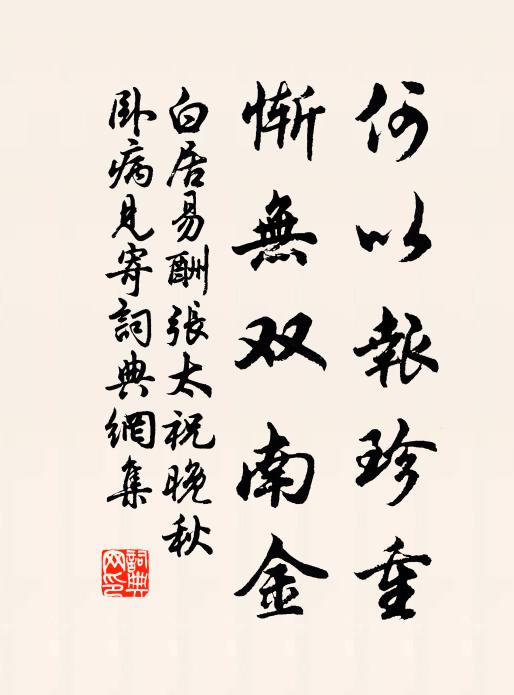 何以報珍重
慚無双南金
白居易酬張太祝晚秋
卧病見寄詞典網集
詞典网印